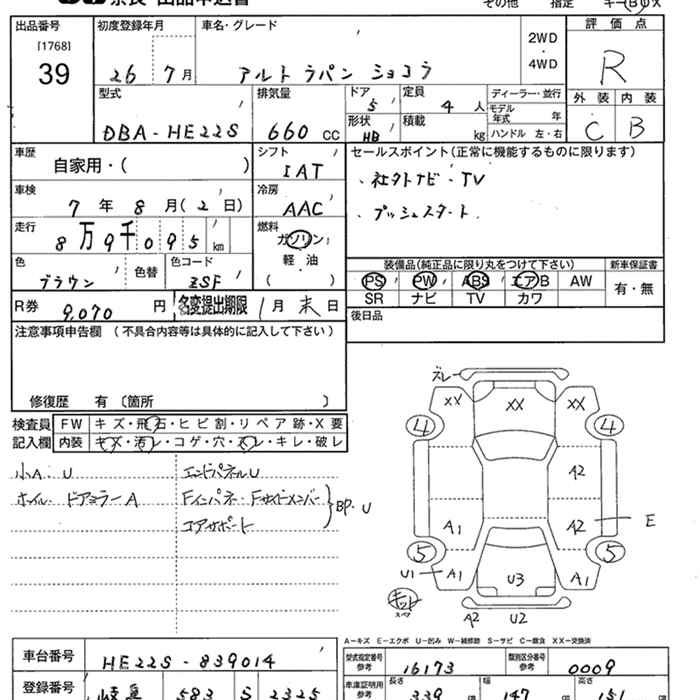 奈良 出品申込書
その他 指定 キー B ・ X
出品番号 初度登録年月 車名・グレード 評価点
[1768]
39
26 7月 アルト ラパン ショコラ
2WD
・
4WD
R
型式 排気量 ドア 定員 ディーラー・並行 外装 内装
DBA-HE22S 660 CC 5 4人
モデル年式 年
形状 積載
HB kg ハンドル 左・右
C B
車歴 シフト セールスポイント(正常に機能するものに限ります)
自家用・( ) IAT
・社外ナビ・TV
車検 冷房
7年8月(2日) AAC
・プッシュスタート
走行 燃料
8万9千095km ガソリン
軽油
( )
色 色替 色コード
ブラウン ZSF
装備品(純正品に限り丸をつけて下さい) 新車保証書
PS PW ABS エアB AW 有・無
SR ナビ TV カワ
R券 9,070円 名変提出期限 1月末日
後日品
注意事項申告欄(不具合内容等は具体的に記入して下さい)
修復歴 有〔箇所 〕
検査員 FW キズ・飛石・ヒビ割・リペア跡・X要
記入欄 内装 キズ・汚レ・コゲ・穴・スレ・キレ・破レ
小A・U エンドパネルU
ホイル・ドアミラーA Fインパネ・Fサイドメンバー
コアサポート
BP・U
ズレ
XX XX XX
4 4
A2
A1 A2 E
5 5
U1 A1 U3 A1
キット
スペア
A2 U2
A-キズ E-エクボ U-凹み W-補修跡 S-サビ C-腐食 XX-交換済
車台番号 HE22S-839014
型式指定番号 参考 16173 類別区分番号 参考 0009
登録番号 岐阜 583 S 2325
車庫証明用 参考 長さ 339 幅 147 高さ 151